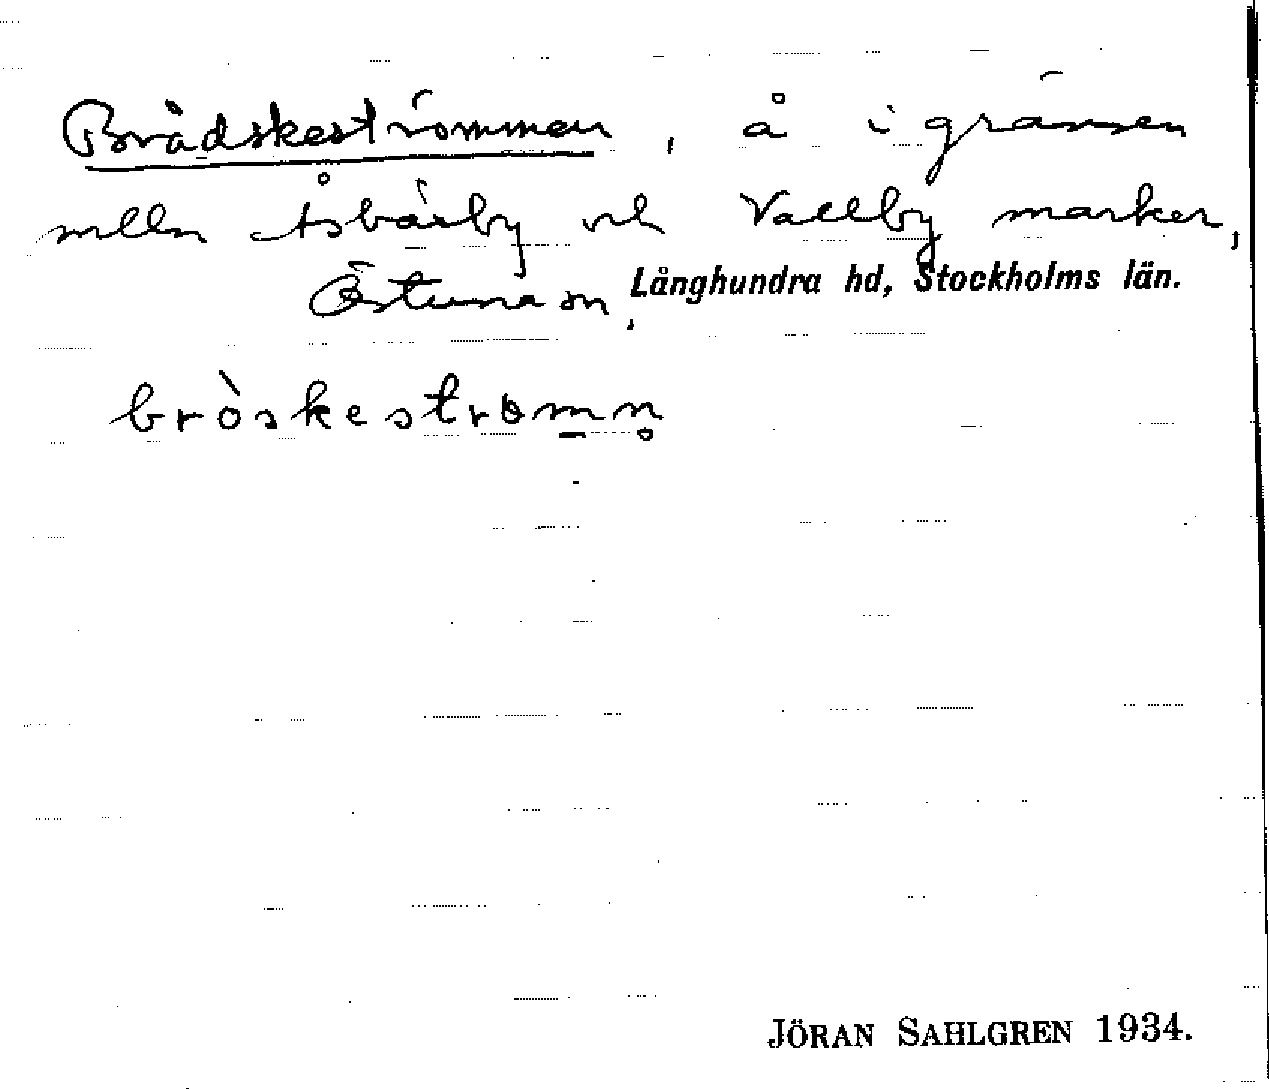 Brådskeströmmen, å i gränsen
mlln Åsbärby och Vallby marker,
Östuna sn, Långhundra hd, Stockholms län.
bròskestromn̥
JÖRAN SAHLGREN 1934.